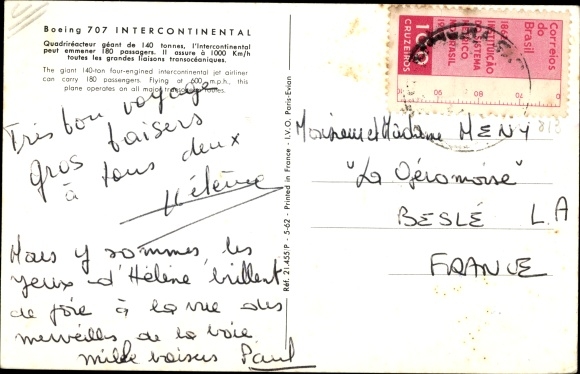 Boeing 707 INTERCONTINENTAL
Quadriréacteur géant de 140 tonnes, l'Intercontinental
peut emmener 180 passagers. Il assure à 1000 Km/h
toutes les grandes liaisons transocéaniques.
The giant 140-ton four-engined intercontinental jet airliner
can carry 180 passengers. Flying at 600 m.p.h., this
plane operates on all major transocean routes.
Très bon voyage
gros baisers
à tous deux
Hélène
Mais y sommes, les
yeux d'Hélène brillent
de joie à la vue des
merveilles de la baie
mille baisers Paul
Réf. 21.455/P - 5-62 - Printed in France - I.V.O. Paris-Evian
Correios
do
Brasil
INSTITUIÇÃO
SISTEMA
BRASIL
100
CRUZEIROS
70
80
90
Monsieur et Madame MENY
"La Géromoise"
BESLÉ L.A
FRANCE